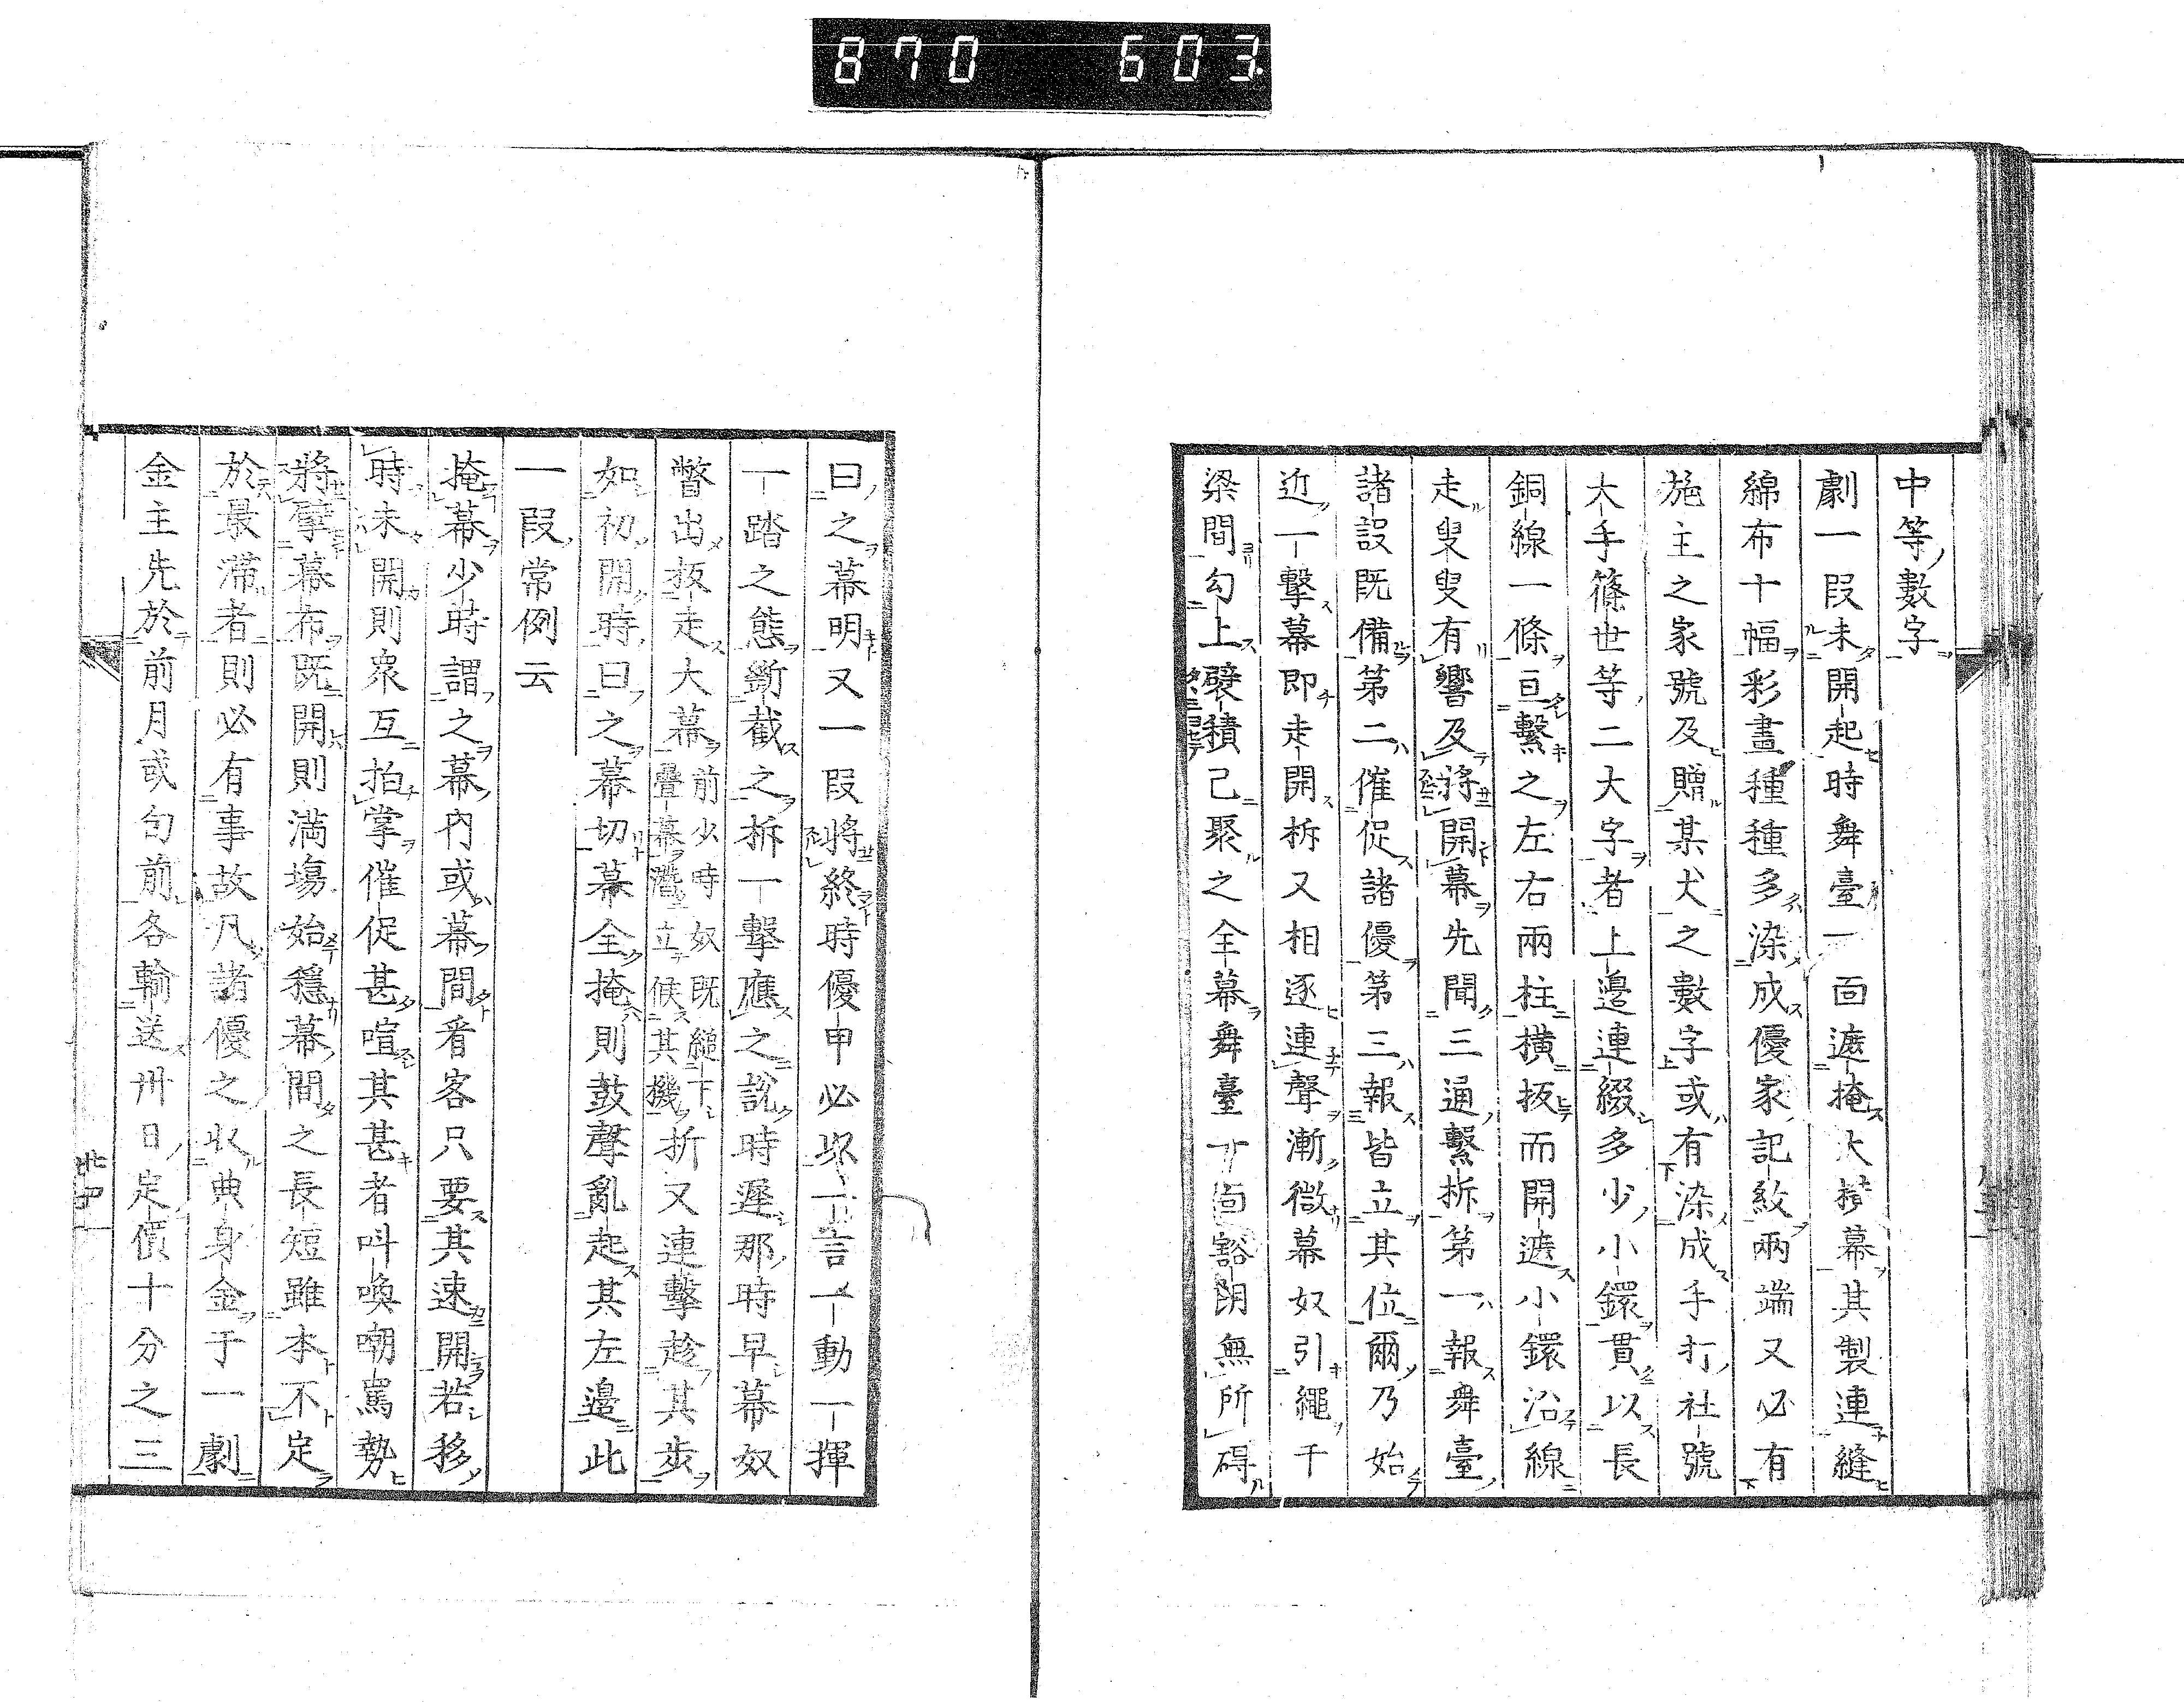 870 603
中等數字
劇一段未開起時舞臺一面遮掩大揬幕其製連縫
綿布十幅彩畫種種多染成優家記紋兩端又必有
施主之家號及贈某犬之數字或有染成手打社號
大手篠世等二大字者上邊連綴多少小鐶貫以長
銅線一條亘繫之左右兩柱橫扳而開遮小鐶沿線
走叟叟有響及將開幕先聞三通繫柝第一報舞臺
諸設既備第二催促諸優第三報皆立其位爾乃始
近一擊幕即走開柝又相逐連聲漸微幕奴引繩千
梁間勾上襞積已聚之全幕舞臺一面豁朗無所碍
曰之幕明又一段將終時優申必以一言一動一揮
一踏之態斷截之柝一擊應之說時遲那時早幕奴
瞥出扳走大幕前少時奴既縋下疊幕潛立候其機折又連擊趁其步
如初開時曰之幕切幕全掩則鼓聲亂起其左邊此
一段常例云
掩幕少時謂之幕內或幕間看客只要其速開若移
時未開則眾互拍掌催促甚喧其甚者叫喚嘲罵勢
將擘幕布既開則滿場始穩幕間之長短雖本不定
於最滯者則必有事故凡諸優之收典身金于一劇
金主先於前月或旬前各輸送卅日定價十分之三